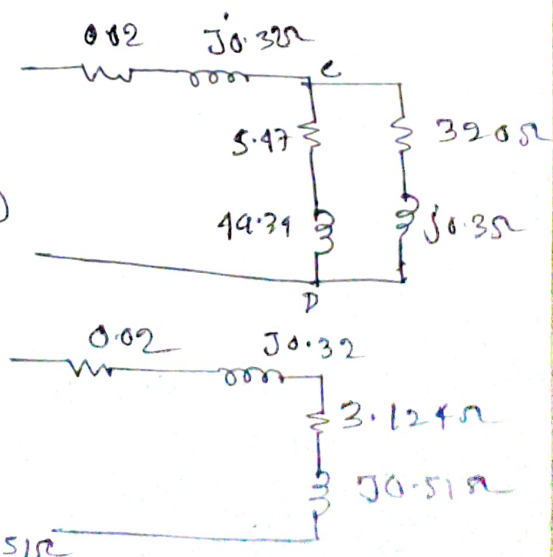 0.02 J0.32Ω
C
5.47 3.20Ω
49.39 j0.3Ω
D
0.02 J0.32
3.124Ω
J0.51Ω
51Ω